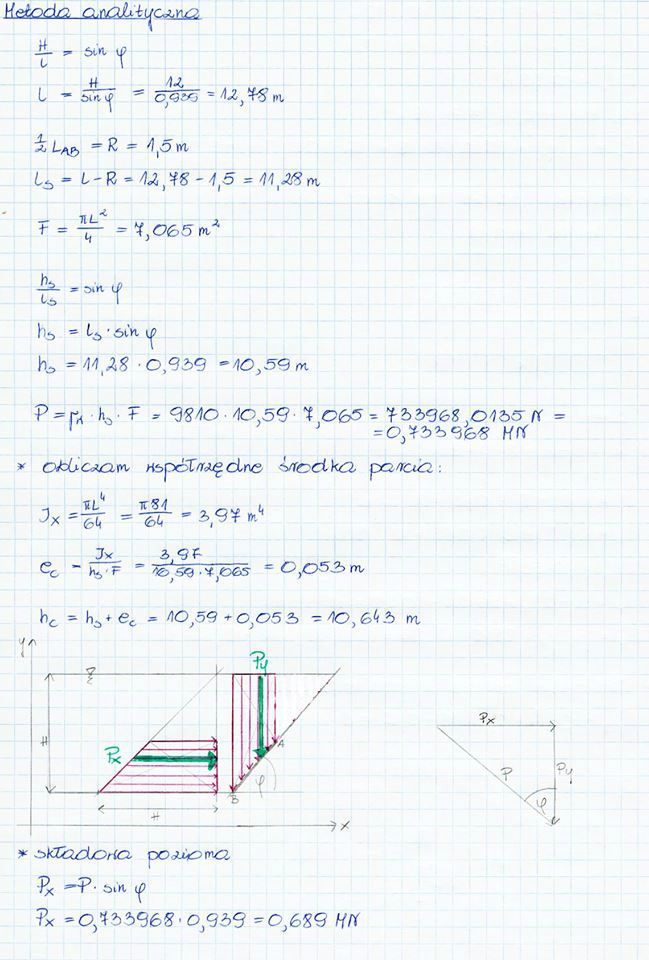 Metoda analityczna
H/L = sin φ
L = H/sin φ = 12/0,939 = 12,78 m
1/2 L_AB = R = 1,5 m
L_s = L - R = 12,78 - 1,5 = 11,28 m
F = πL²/4 = 7,065 m²
h_s/L_s = sin φ
h_s = L_s · sin φ
h_s = 11,28 · 0,939 = 10,59 m
P = γ_w · h_s · F = 9810 · 10,59 · 7,065 = 733968,0135 N =
= 0,733968 MN
* obliczam współrzędne środka parcia:
J_x = πL⁴/64 = π81/64 = 3,97 m⁴
e_c = J_x/h_s·F = 3,97/10,59·7,065 = 0,053 m
h_c = h_s + e_c = 10,59 + 0,053 = 10,643 m
y
Py
H
Px
A
B
φ
H
x
Px
P
Py
φ
* składowa pozioma
Px = P · sin φ
Px = 0,733968 · 0,939 = 0,689 MN